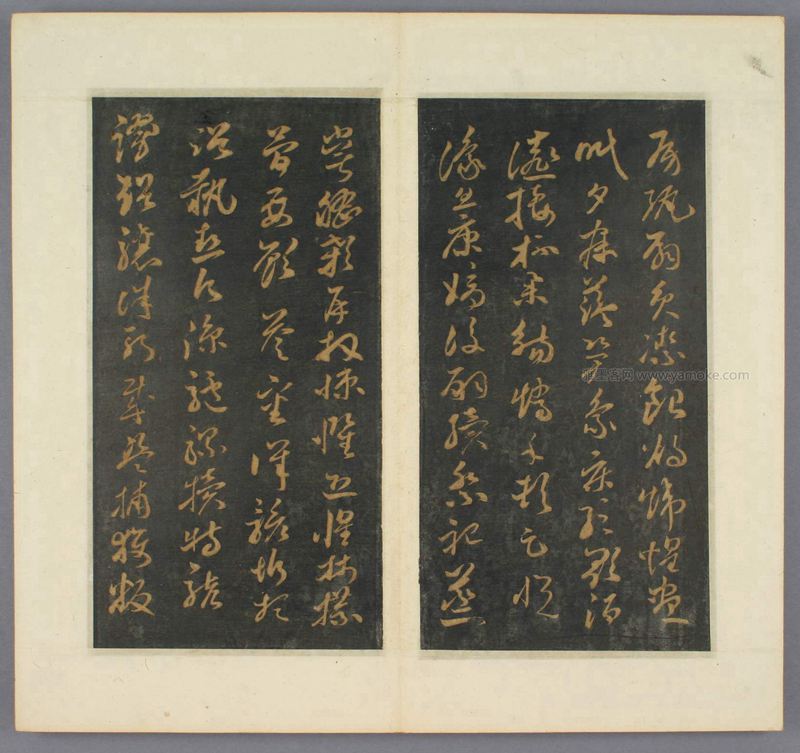 房紈扇員潔銀燭煒煌晝
眠夕寐藍笋象床弦歌酒
讌接杯舉觴矯手頓足悅
豫且康嫡後嗣續祭祀蒸
嘗稽顙再拜悚懼恐惶牋牒
簡要顧答審詳骸垢想
浴執熱願涼驢騾犢特駭
躍超驤誅斬賊盜捕獲叛
雅墨客网 www.yamoke.com